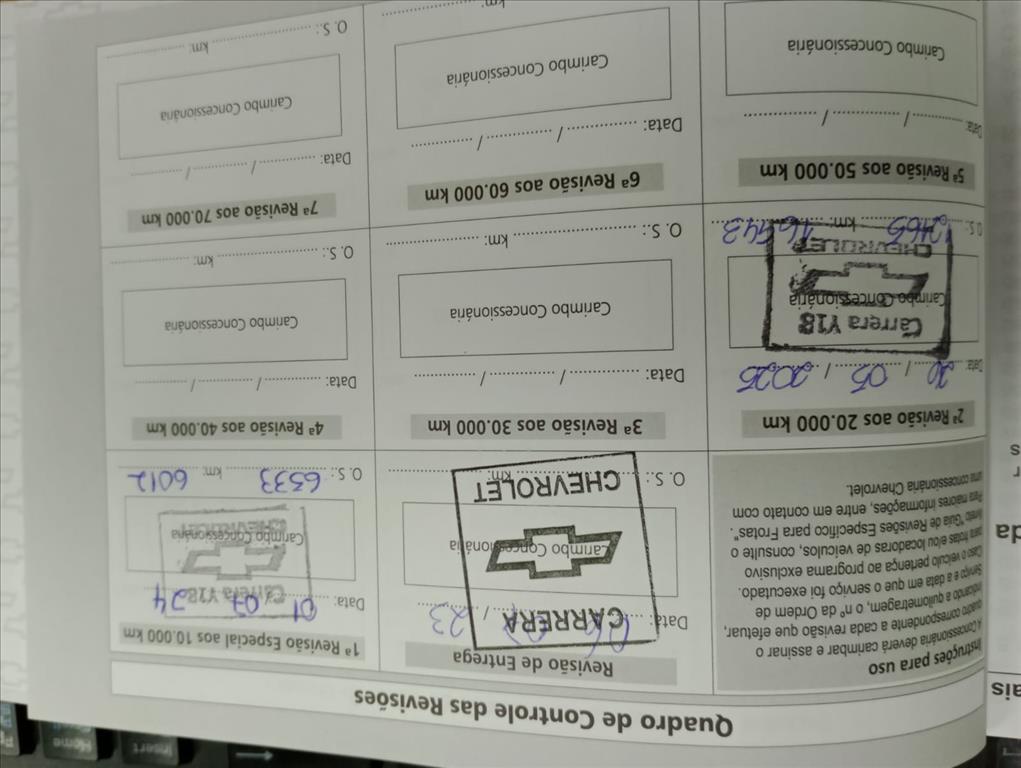 Quadro de Controle das Revisões
Instruções para uso
A Concessionária deverá carimbar e assinar o
quadro correspondente a cada revisão que efetuar,
indicando a quilometragem, o nº da Ordem de
Serviço e a data em que o serviço foi executado.
Caso o veículo pertença ao programa exclusivo
para frotas e/ou locadoras de veículos, consulte o
livreto "Guia de Revisões Específico para Frotas".
Para maiores informações, entre em contato com
uma concessionária Chevrolet.
Revisão de Entrega
Data: / 23
CARRERA
Carimbo Concessionária
CHEVROLET
O. S.: km:
1ª Revisão Especial aos 10.000 km
Data: 01 07 24
Carrera Y18
Carimbo Concessionária
CHEVROLET
O. S.: 6333 km: 6012
2ª Revisão aos 20.000 km
Data: 20 / 05 / 2025
Carrera Y18
Carimbo Concessionária
CHEVROLET
O. S.: 12465 km: 16543
3ª Revisão aos 30.000 km
Data: / /
Carimbo Concessionária
O. S.: km:
4ª Revisão aos 40.000 km
Data: / /
Carimbo Concessionária
O. S.: km:
5ª Revisão aos 50.000 km
Data: / /
Carimbo Concessionária
6ª Revisão aos 60.000 km
Data: / /
Carimbo Concessionária
km:
7ª Revisão aos 70.000 km
Data: / /
Carimbo Concessionária
O. S.: km:
ais
da
r
s
Insert
Home